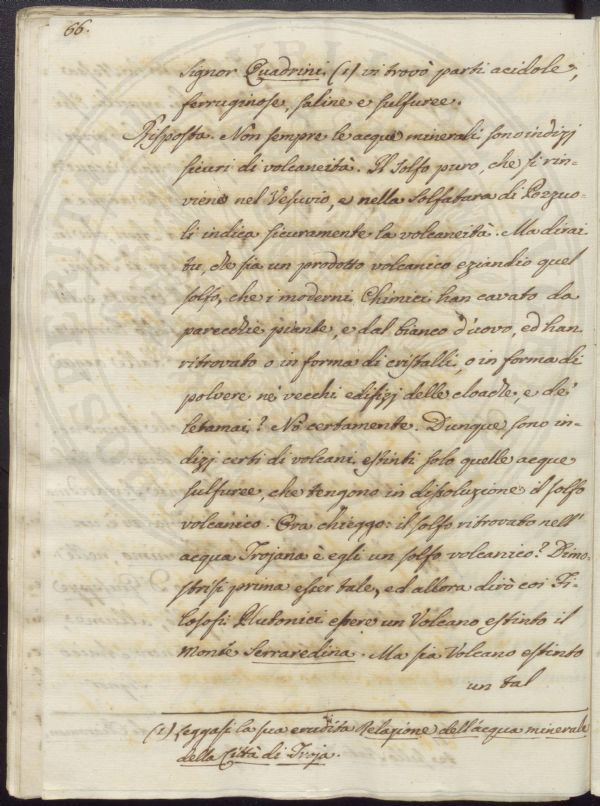 66.
Signor Quadrini (1) vi trovò parti acidole,
ferruginose, saline e sulfuree.
Risposta. Non sempre le acque minerali sono indizj
sicuri di volcaneità. Il solfo puro, che si rin-
viene nel Vesuvio, e nella Solfatara di Pozzuo-
li indica sicuramente la volcaneità. Ma dirai
tu, che sia un prodotto volcanico eziandio quel
solfo, che i moderni Chimici han cavato da
parecchie piante, e dal bianco d'uovo, ed han
ritrovato o in forma di cristalli, o in forma di
polvere ne' vecchi edifizj delle cloache, e de'
letamai? Nò certamente. Dunque sono in-
dizj certi di volcani estinti solo quelle acque
sulfuree, che tengono in dissoluzione il solfo
volcanico. Ora chieggo: il solfo ritrovato nell'
acqua Trojana è egli un solfo volcanico? Dimo-
strisi prima esser tale, ed allora dirò coi Fi-
losofi Plutonici essere un Volcano estinto il
Monte Serraredina. Ma sia Volcano estinto
un tal
(1) Leggasi la sua erudita Relazione dell'acqua minerale
della Città di Troja.